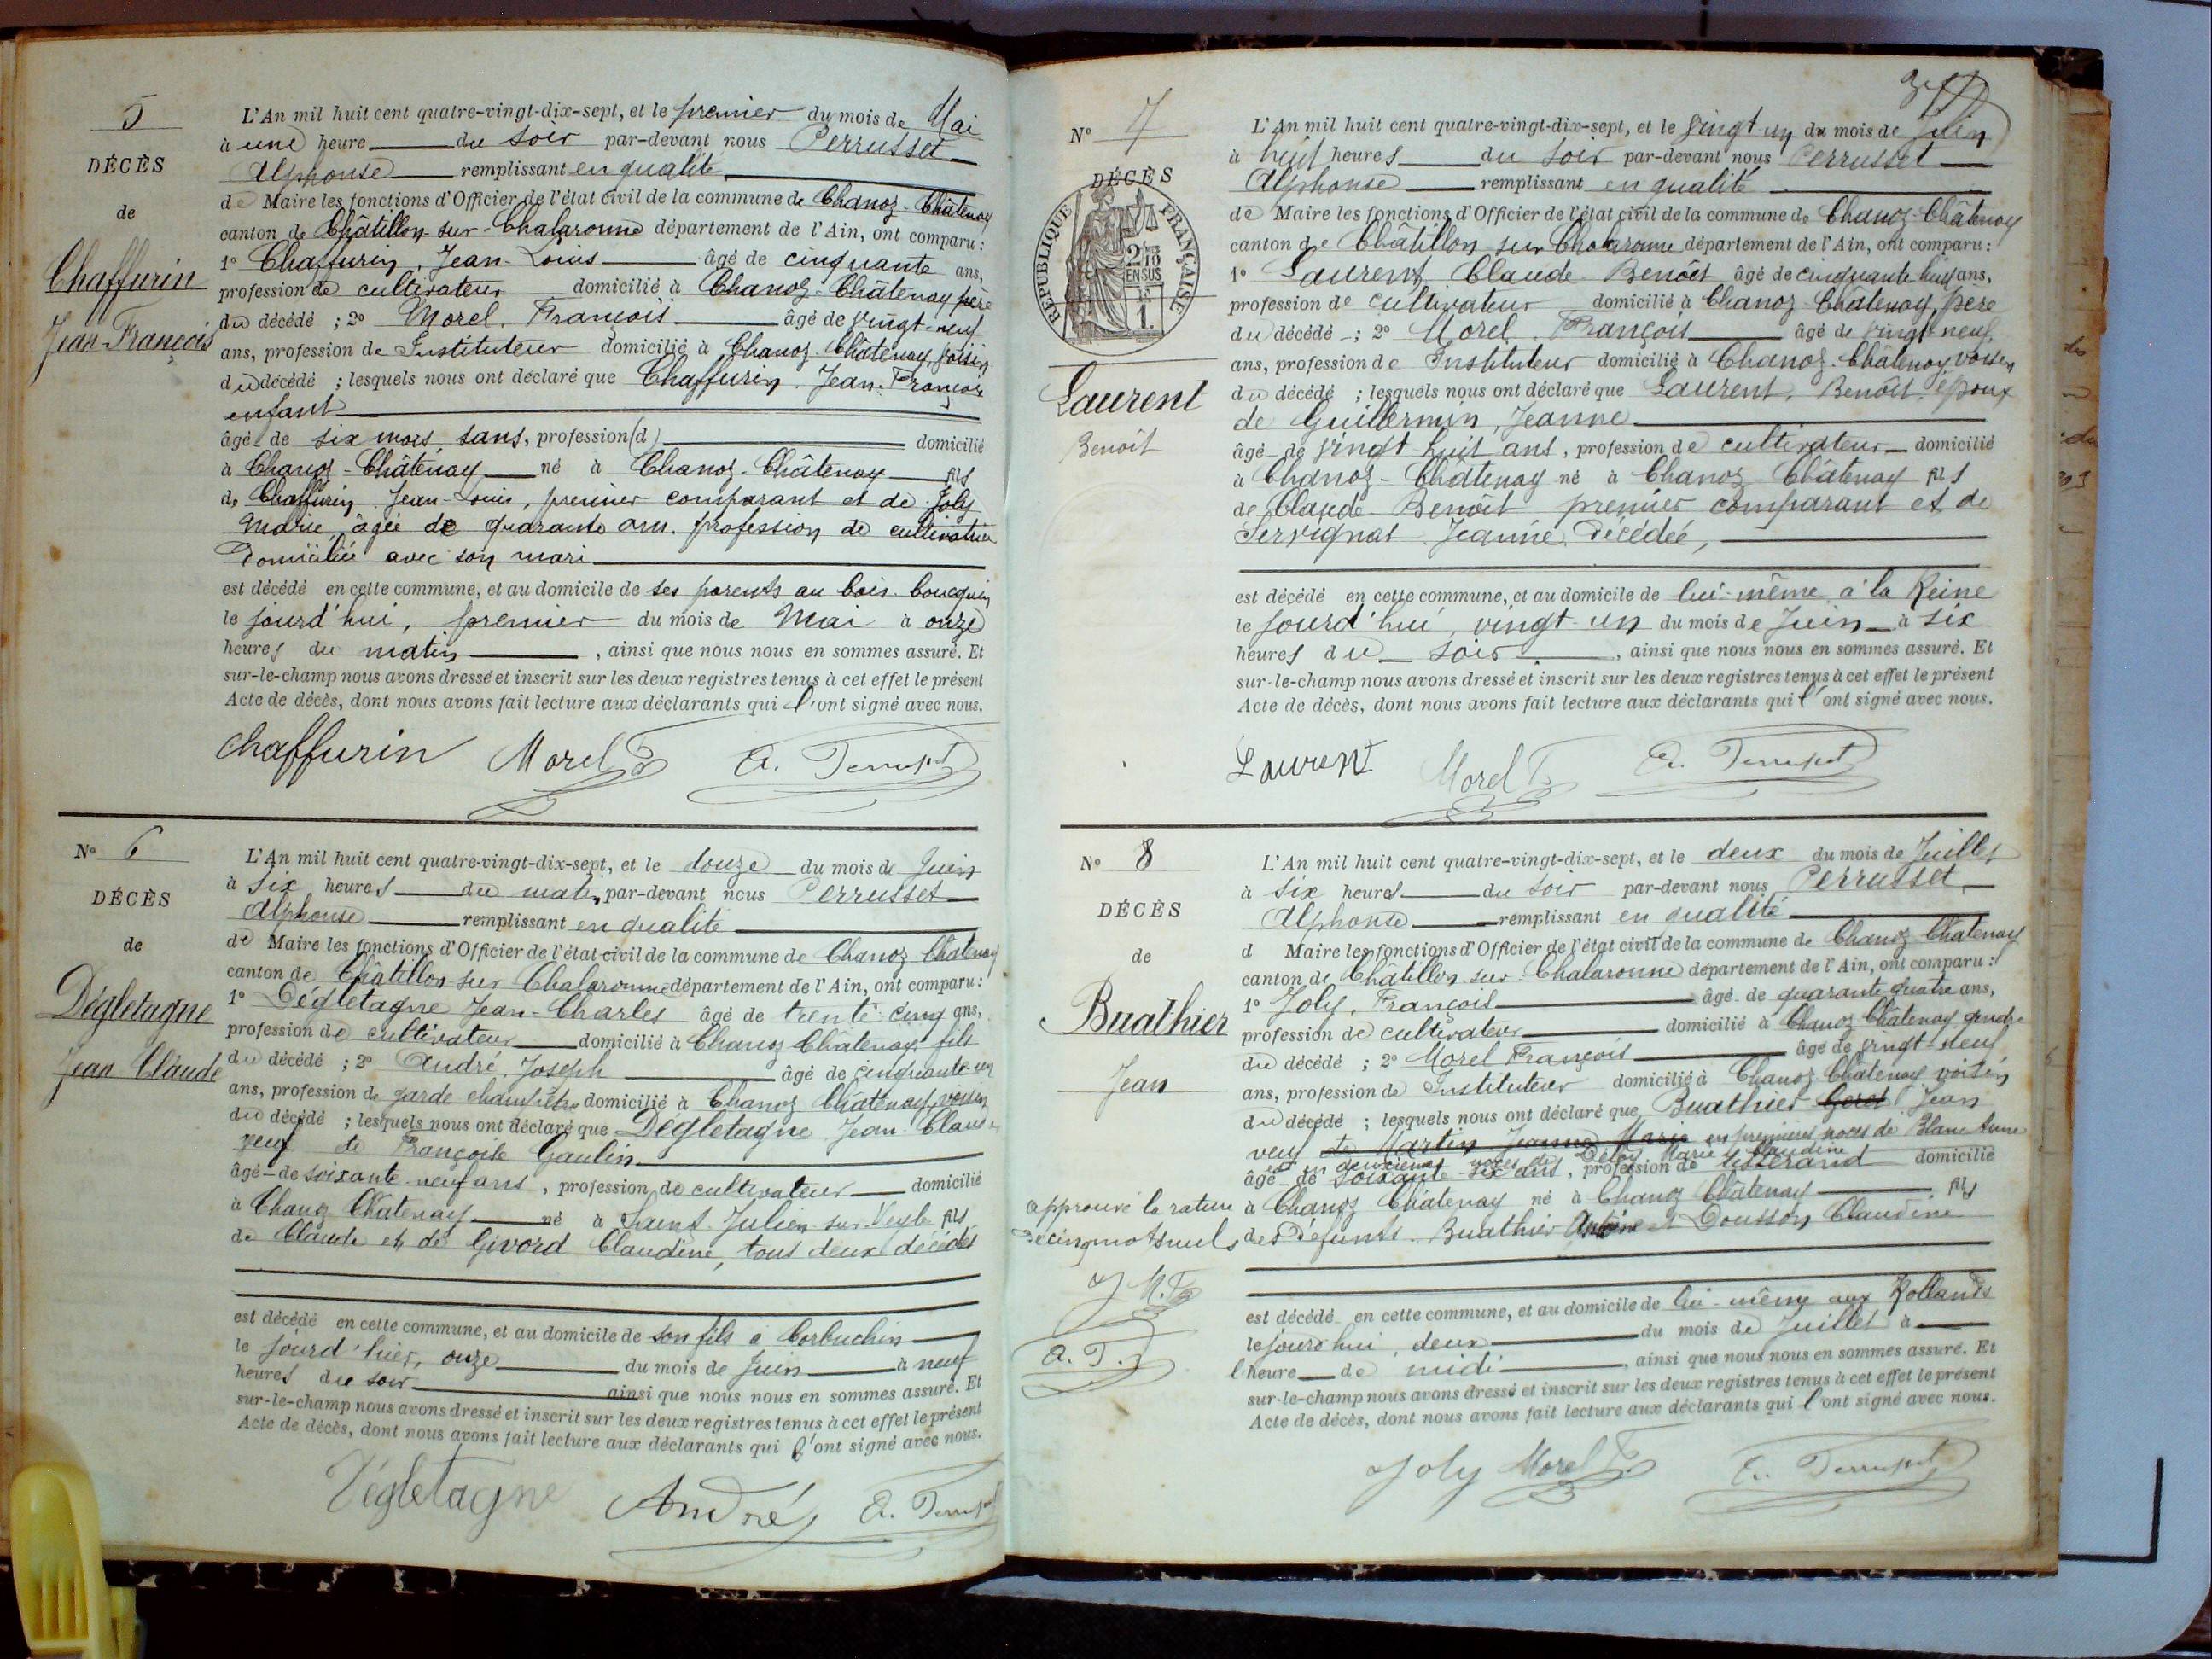 5
DÉCÈS
de
Chaffurin
Jean François
L'An mil huit cent quatre-vingt-dix-sept, et le premier du mois de Mai
à une heure du soir par-devant nous Perrusset
Alphonse remplissant en qualité
de Maire les fonctions d'Officier de l'état civil de la commune de Chanoz-Châtenay
canton de Châtillon-sur-Chalaronne département de l'Ain, ont comparu :
1° Chaffurin, Jean-Louis âgé de cinquante ans,
profession de cultivateur domicilié à Chanoz-Châtenay père
du décédé ; 2° Morel François âgé de vingt-neuf
ans, profession de Instituteur domicilié à Chanoz-Châtenay voisin
du décédé ; lesquels nous ont déclaré que Chaffurin Jean-François
enfant
âgé de six mois sans, profession (d) domicilié
à Chanoz-Châtenay né à Chanoz-Châtenay fils
de Chaffurin Jean-Louis, premier comparant et de Joly
Marie, âgée de quarante ans. profession de cultivatrice
Domiciliée avec son mari
est décédé en cette commune, et au domicile de ses parents au bois bourquin
le jourd'hui, premier du mois de Mai à onze
heures du matin, ainsi que nous nous en sommes assuré. Et
sur-le-champ nous avons dressé et inscrit sur les deux registres tenus à cet effet le présent
Acte de décès, dont nous avons fait lecture aux déclarants qui l'ont signé avec nous.
Chaffurin Morel F A. Perrusset
N° 6
DÉCÈS
de
Dégletagne
Jean Claude
L'An mil huit cent quatre-vingt-dix-sept, et le douze du mois de Juin
à six heures du matin par-devant nous Perrusset
Alphonse remplissant en qualité
de Maire les fonctions d'Officier de l'état civil de la commune de Chanoz Châtenay
canton de Châtillon sur Chalaronne département de l'Ain, ont comparu :
1° Dégletagne Jean-Charles âgé de trente-cinq ans,
profession de cultivateur domicilié à Chanoz Châtenay fils
du décédé ; 2° André Joseph âgé de cinquante-un
ans, profession de garde champêtre domicilié à Chanoz Châtenay, voisin
du décédé ; lesquels nous ont déclaré que Dégletagne Jean-Claude
veuf de Françoise Gaulin
âgé de soixante-neuf ans, profession de cultivateur domicilié
à Chanoz Châtenay né à Saint-Julien-sur-Veyle fils
de Claude et de Givord Claudine, tous deux décédés
est décédé en cette commune, et au domicile de son fils à Corbuchin
le jourd'hier, onze du mois de Juin à neuf
heures du soir ainsi que nous nous en sommes assuré. Et
sur-le-champ nous avons dressé et inscrit sur les deux registres tenus à cet effet le présent
Acte de décès, dont nous avons fait lecture aux déclarants qui l'ont signé avec nous.
Dégletagne André A. Perrusset
N° 7
DÉCÈS
RÉPUBLIQUE FRANÇAISE
2/10
EN SUS
1.
Laurent
Benoit
L'An mil huit cent quatre-vingt-dix-sept, et le vingt-un du mois de Juin
à huit heures du soir par-devant nous Perrusset
Alphonse remplissant en qualité
de Maire les fonctions d'Officier de l'état civil de la commune de Chanoz-Châtenay
canton de Châtillon sur Chalaronne département de l'Ain, ont comparu :
1° Laurent, Claude Benoît âgé de cinquante-huit ans,
profession de cultivateur domicilié à Chanoz-Châtenay, père
du décédé ; 2° Morel François âgé de vingt neuf
ans, profession de Instituteur domicilié à Chanoz-Châtenay voisin
du décédé ; lesquels nous ont déclaré que Laurent, Benoît, époux
de Guillermin, Jeanne
âgé de vingt huit ans, profession de cultivateur domicilié
à Chanoz-Châtenay né à Chanoz-Châtenay fils
de Claude Benoît premier comparant et de
Servignat Jeanne Décédée,
est décédé en cette commune, et au domicile de lui-même à la Reine
le jourd'hui, vingt-un du mois de Juin à six
heures du soir, ainsi que nous nous en sommes assuré. Et
sur-le-champ nous avons dressé et inscrit sur les deux registres tenus à cet effet le présent
Acte de décès, dont nous avons fait lecture aux déclarants qui l'ont signé avec nous.
Laurent Morel F. A. Perrusset
N° 8
DÉCÈS
de
Buathier
Jean
L'An mil huit cent quatre-vingt-dix-sept, et le deux du mois de Juillet
à six heures du soir par-devant nous Perrusset
Alphonse remplissant en qualité
d Maire les fonctions d'Officier de l'état civil de la commune de Chanoz Châtenay
canton de Châtillon sur Chalaronne département de l'Ain, ont comparu :
1° Joly, François âgé de quarante-quatre ans,
profession de cultivateur domicilié à Chanoz Châtenay gendre
du décédé ; 2° Morel François âgé de vingt-neuf
ans, profession de Instituteur domicilié à Chanoz Châtenay voisin
du décédé ; lesquels nous ont déclaré que Buathier Jean
veuf de Martin Jeanne Marie en premières noces de Blanc Anne
et en deuxièmes noces de Marie Claudine
âgé de soixante-six ans, profession de tisserand domicilié
à Chanoz Châtenay né à Chanoz Châtenay fils
des Défunts Buathier Antoine et Dousson Claudine
approuvé la rature
de cinq mots nuls
J M.F.
A. P.
est décédé en cette commune, et au domicile de lui-même aux Rollands
le jourd'hui, deux du mois de Juillet à
l'heure de midi, ainsi que nous nous en sommes assuré. Et
sur-le-champ nous avons dressé et inscrit sur les deux registres tenus à cet effet le présent
Acte de décès, dont nous avons fait lecture aux déclarants qui l'ont signé avec nous.
Joly Morel F. A. Perrusset